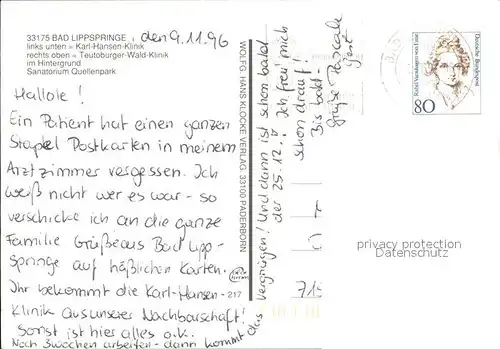 33175 BAD LIPPSPRINGE, den 9.11.96
links unten = Karl-Hansen-Klinik
rechts oben = Teutoburger-Wald-Klinik
im Hintergrund
Sanatorium Quellenpark
Hallole!
Ein Patient hat einen ganzen
Stapel Postkarten in meinem
Arztzimmer vergessen. Ich
weiß nicht wer es war - so
verschicke ich an die ganze
Familie Grüße aus Bad Lipp-
springe auf häßlichen Karten.
Ihr bekommt die Karl-Hansen-
Klinik aus unserer Nachbarschaft!
Sonst ist hier alles o.k.
Noch 3 Wochen arbeiten - dann kommt das
Vergnügen! Und dann ist schon bald
der 25.12.!! Ich freu' mich
schon drauf!
Bis bald -
Grüße Pascale
217
WOLFG. HANS KLOCKE VERLAG 33100 PADERBORN
Deutsche Bundespost
Rahel Varnhagen von Ense
80
715
privacy protection
Datenschutz